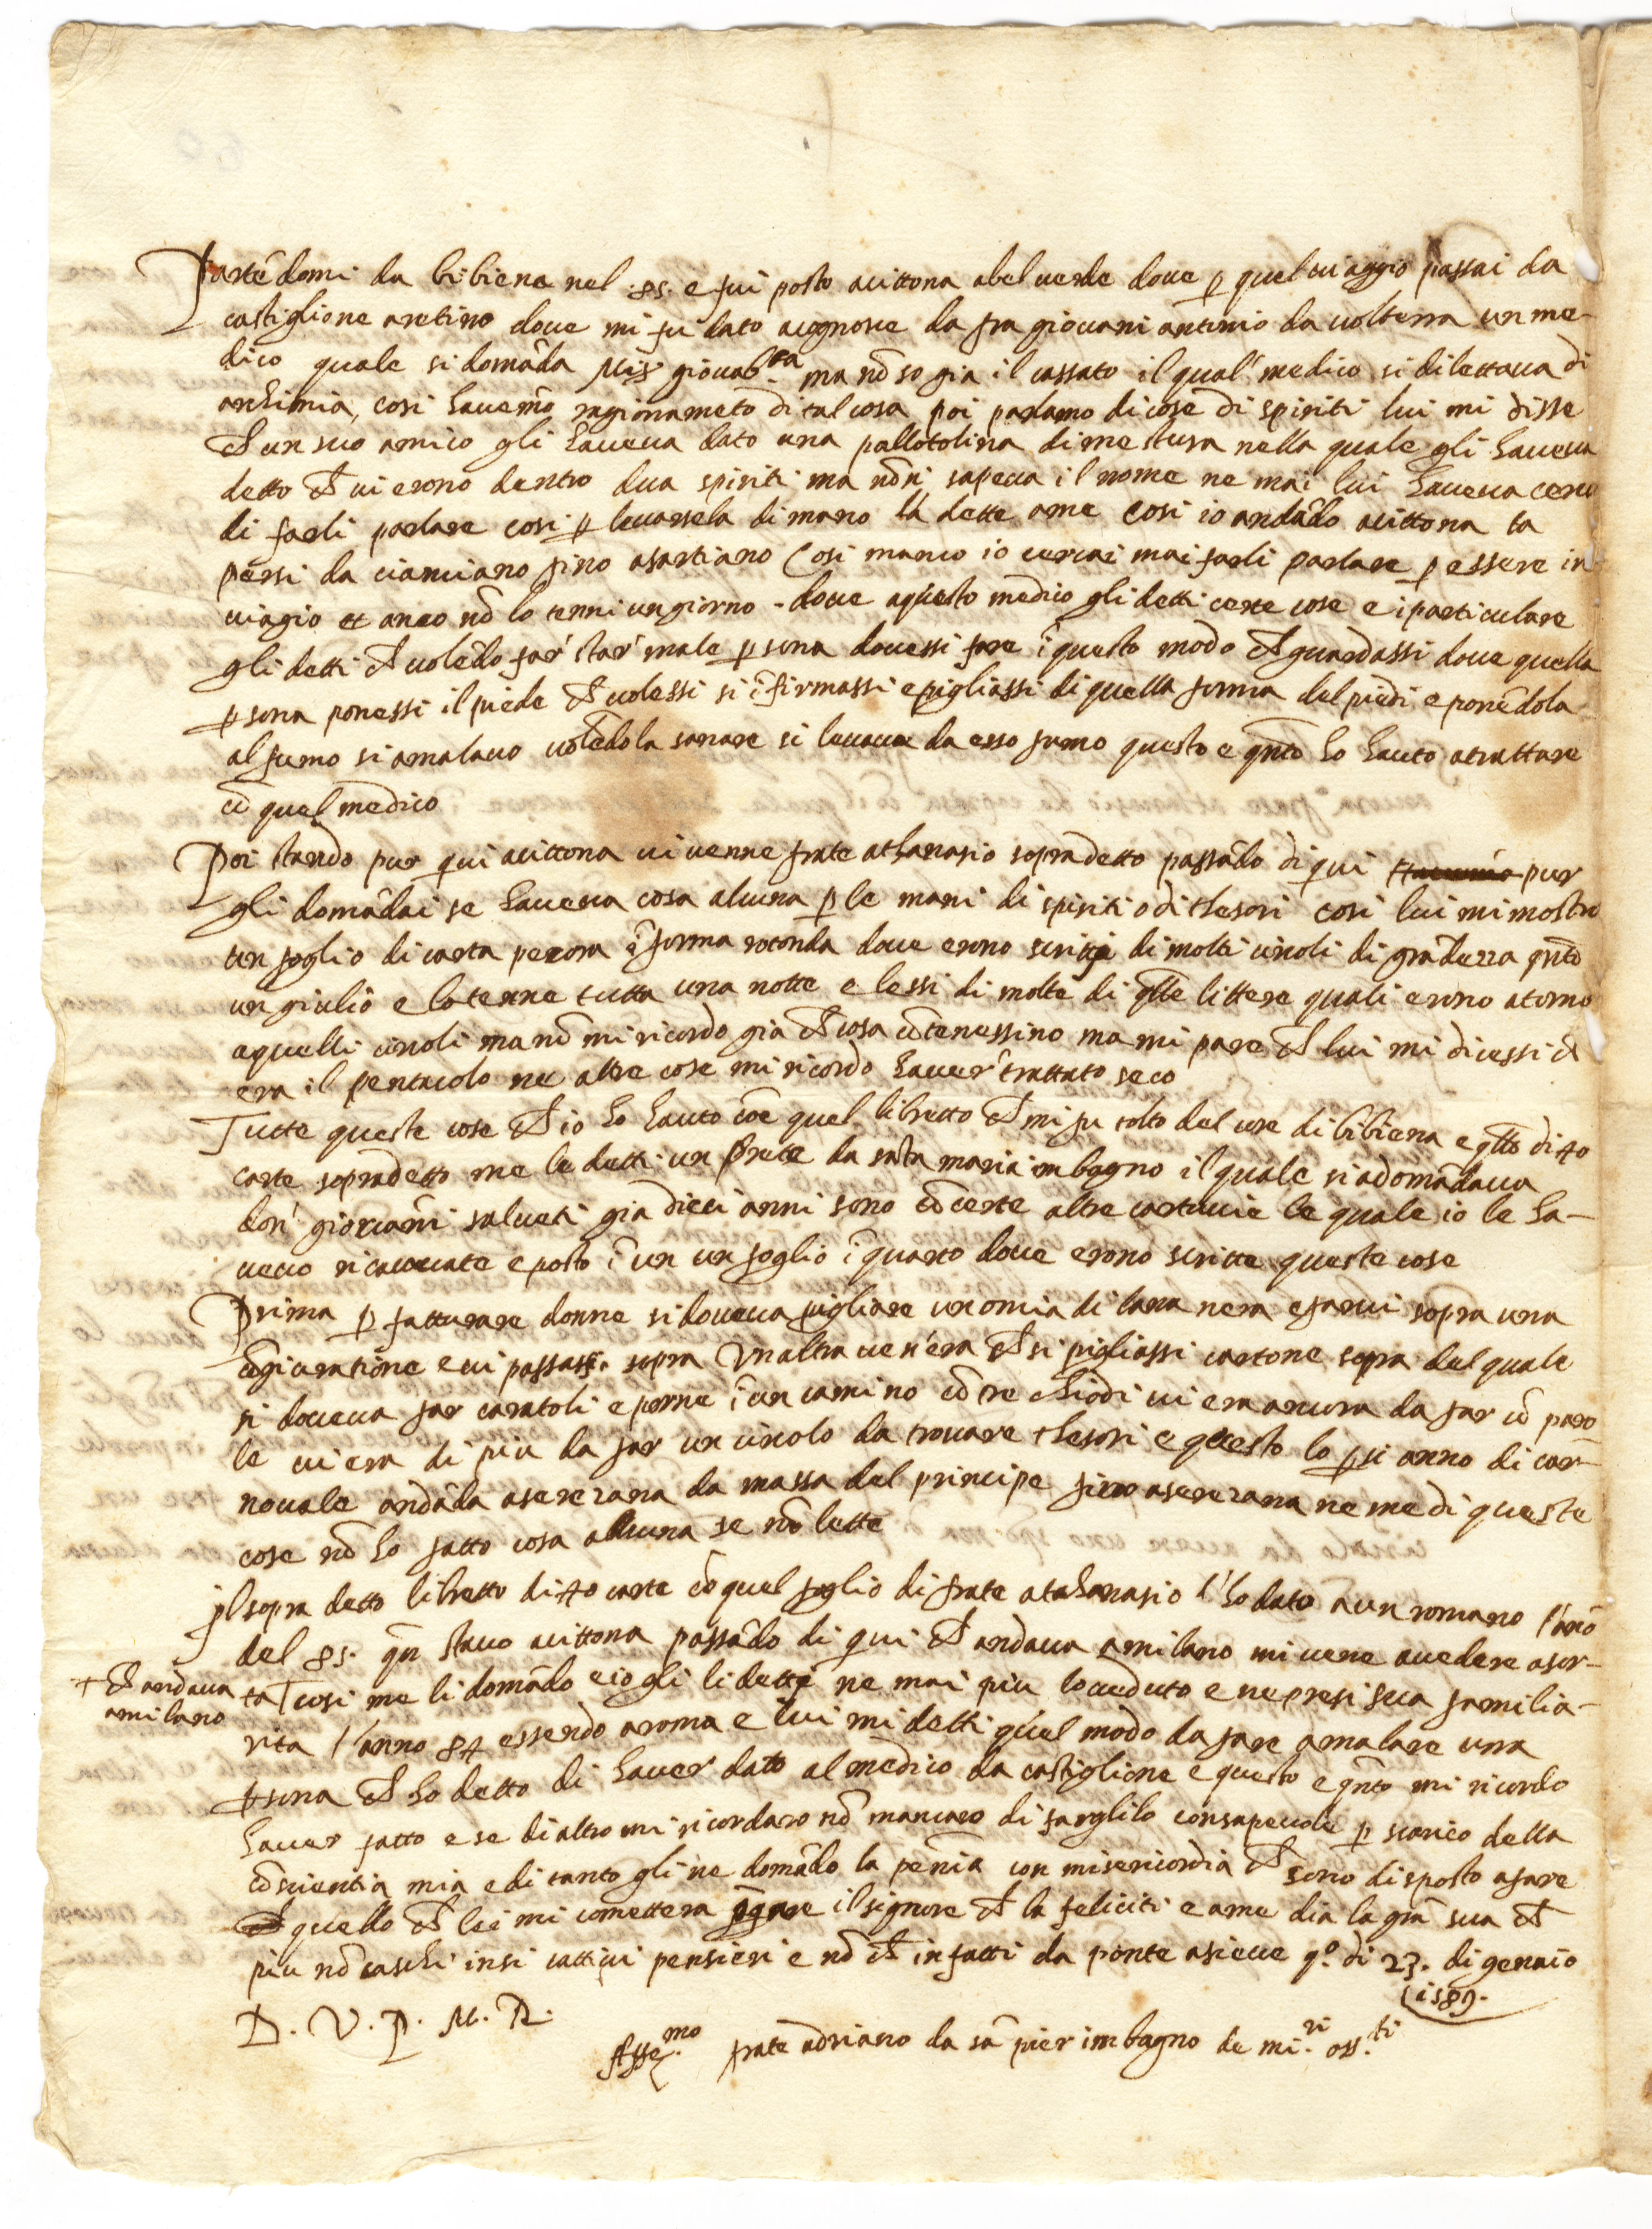 Partẽdomi da bibiena nel .85. e fui posto a cittona a bel uerde doue ꝑ quel uiaggio passai da
castiglione aretino doue mi fu dato a cognosce da fra giouani antonio da uolterra un me-
dico quale si domãda giouab.ta ma nõ so gia il cassato il qual medico si dilettaua di
archimia, cosi hauemo ragionameto di tal cosa poi parlamo di cose di spiriti lui mi disse
ch un suo amico gli haueua dato una pallotolina di mestura nella quale gli haueua
detto ch ui erono dentro dua spiriti ma nõ ni sapeua il nome ne mai lui haueua cerco
di farli parlare cosi ꝑ leuarsela di mano la dette a me cosi io andãdo a cittona la
persi da cianciano fino a sartiano cosi manco io cercai mai farli parlare ꝑ essere in
uiagio et anco nõ lo tenni un giorno - doue a questo medico gli detti certe cose e i particulare
gli detti ch uolẽdo far' star' male ꝑsona douessi fare ĩ questo modo ch guardassi doue quella
ꝑsona ponessi il piede ch uolessi si ĩfirmassi e pigliassi di quella forma del piedi e ponẽdola
al fumo si amalauo uolẽdola sanare si leuaua da esso fumo questo e qñto ho hauto a trattare
cõ quel medico
Poi stando pur qui a cittona ui uenne frate athanasio sopradetto passãdo di qui pur
gli domãdai se haueua cosa alcuna ꝑ le mani di spiriti o di thesori cosi lui mi mostro
un foglio di carta pecora ĩ forma rotonda doue erono scritti di molti circoli di grãdezza qñto
un giulio e lo tenne tutta una notte e lessi di molte di qlle littere quali erono atorno
a quelli circoli ma nõ mi ricordo gia ch cosa cõtenessino ma mi pare ch lui mi dicessi ch
era il pentacolo ne altre cose mi ricordo hauer' trattato seco
Tutte queste cose ch io ho hauto cõe quel libretto ch mi fu tolto del core di bibiena e qllo di 40
carte sopradetto me le detti un prete da sãta maria im bagno il quale si adomãdaua
don' giouãni salueti gia dieci anni sono cõ certe altre cartucie le quale io le ha-
ueuo ricauate e posto ĩ un un foglio ĩ quarto doue erono scritte queste cose
Prima ꝑ fatturare donne si doueua pigliare un omia di lana nera e farui sopra una
cõgiuratione e ui passassi sopra Vnaltra ue n'era ch si pigliassi cartone sopra del quale
si doueua far caratoli e porne ĩ un camino cõ tre chiodi ui era ancora da far cõ paro
le ui era di piu da far un circolo da trouare thesori e questo lo ꝑsi anno di car-
nouale andãda a serezana da massa del principe fino a serezana ne me di queste
cose nõ ho fatto cosa alcuna se nõ lette
Il sopra detto libretto di 40 carte cõ quel foglio di frate atahanasio l'ho dato a un romano l'ãno
del 85. qñ stauo a cittona passãdo di qui ch andaua a milano mi uene a uedere a sor-
+ ch andaua
a milano
ta + cosi me li domãdo e io gli li detti ne mai piu lo ueduto e ne presi sua familia-
rita l'anno 84 essendo a roma e lui mi detti quel modo da fare amalare una
ꝑsona ch ho detto di hauer dato al medico da castiglione e questo e qñto mi ricordo
hauer fatto e se di altro mi ricordaro nõ mancaro di farglilo consapeuole ꝑ scarico della
cõscientia mia e di tanto gli ne domãdo la penĩa con misericordia ch sono disposto a fare
quello ch lei mi cometterà il signore ch la feliciti e a me dia la gr̃a sua ch
piu nõ caschi in si cattiui pensieri e nõ ch in fatti da ponte a sieue q.o di 23. di genaio
1589.
D. V. P. M. R.
Affe.mo frate adriano da sã pier im bagno de mi.ri oss.ti